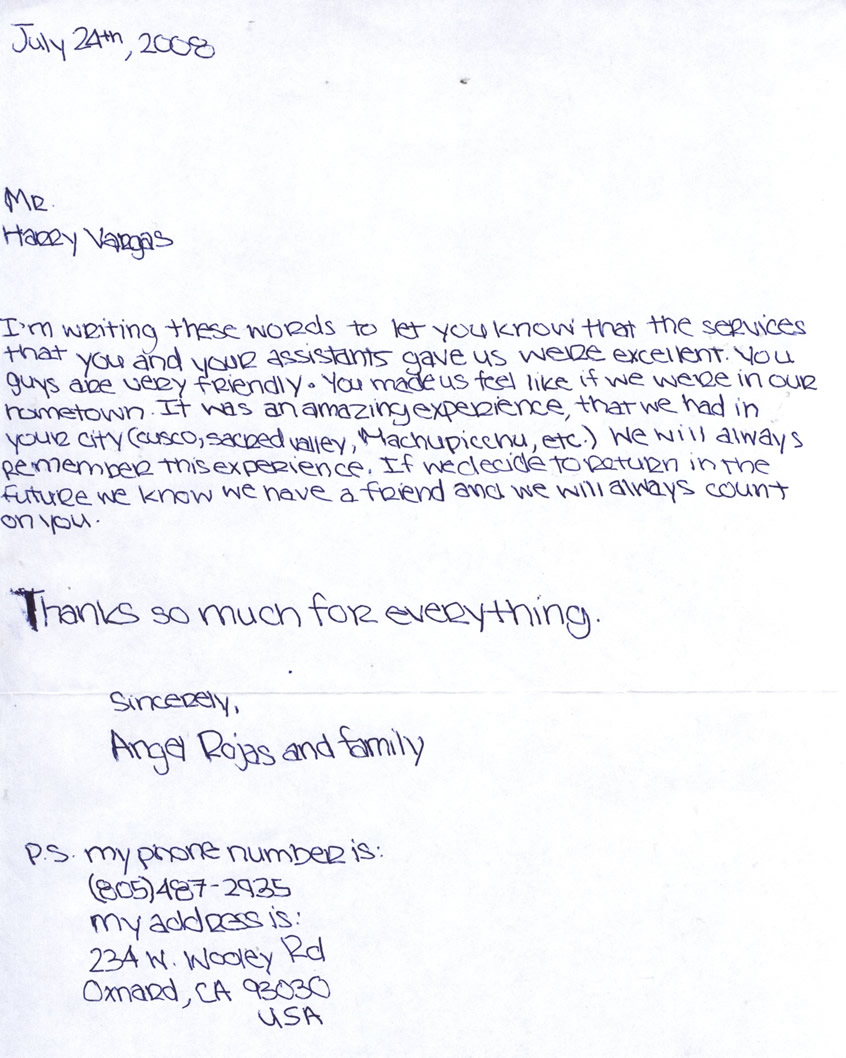 July 24th, 2008
Mr.
Harry Vargas
I'm writing these words to let you know that the services
that you and your assistants gave us were excellent. You
guys are very friendly. You made us feel like if we were in our
hometown. It was an amazing experience, that we had in
your city (cusco, sacred valley, Machupicchu, etc.) We will always
remember this experience. If we decide to return in the
future we know we have a friend and we will always count
on you.
Thanks so much for everything.
Sincerely,
Angel Rojas and family
P.S. my phone number is:
(805)487-2935
my address is:
234 W. Wooley Rd
Oxnard, CA 93030
USA